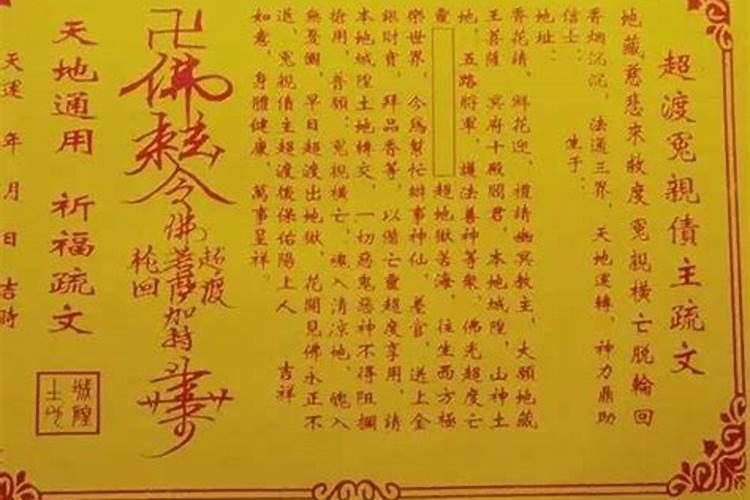 超渡冤親債主疏文
地藏慈悲來救度 冤親橫亡脫輪回
香烟沉沉，法通三界，天地運轉，神力鼎助
信士：　生于：
地址：
香花請，鮮花迎，禮請幽冥教主，大願地藏
王菩薩 冥府十殿閻君，本地城隍，山神土
地，五路將軍，護法善神等衆，佛光超度亡
靈 超地獄苦海，往生西方極
樂世界，今爲幫忙辦事神仙，差官，送上金
銀財寶，拜品香等，以備亡靈超度享用，請
本地城隍土地轉交，一切惡鬼惡神不得阻攔
搶用，普願：冤親橫亡，魂入清凉地，魄入
無憂園，早日超渡出地獄，花開見佛永正不
退，冤親債主超渡後保佑陽上人 吉祥
如意，身體健康，萬事呈祥。
卍佛
令佛菩薩加持
超渡
輪回
天地通用 祈福疏文
城隍土地
天運 年 月 日 吉時